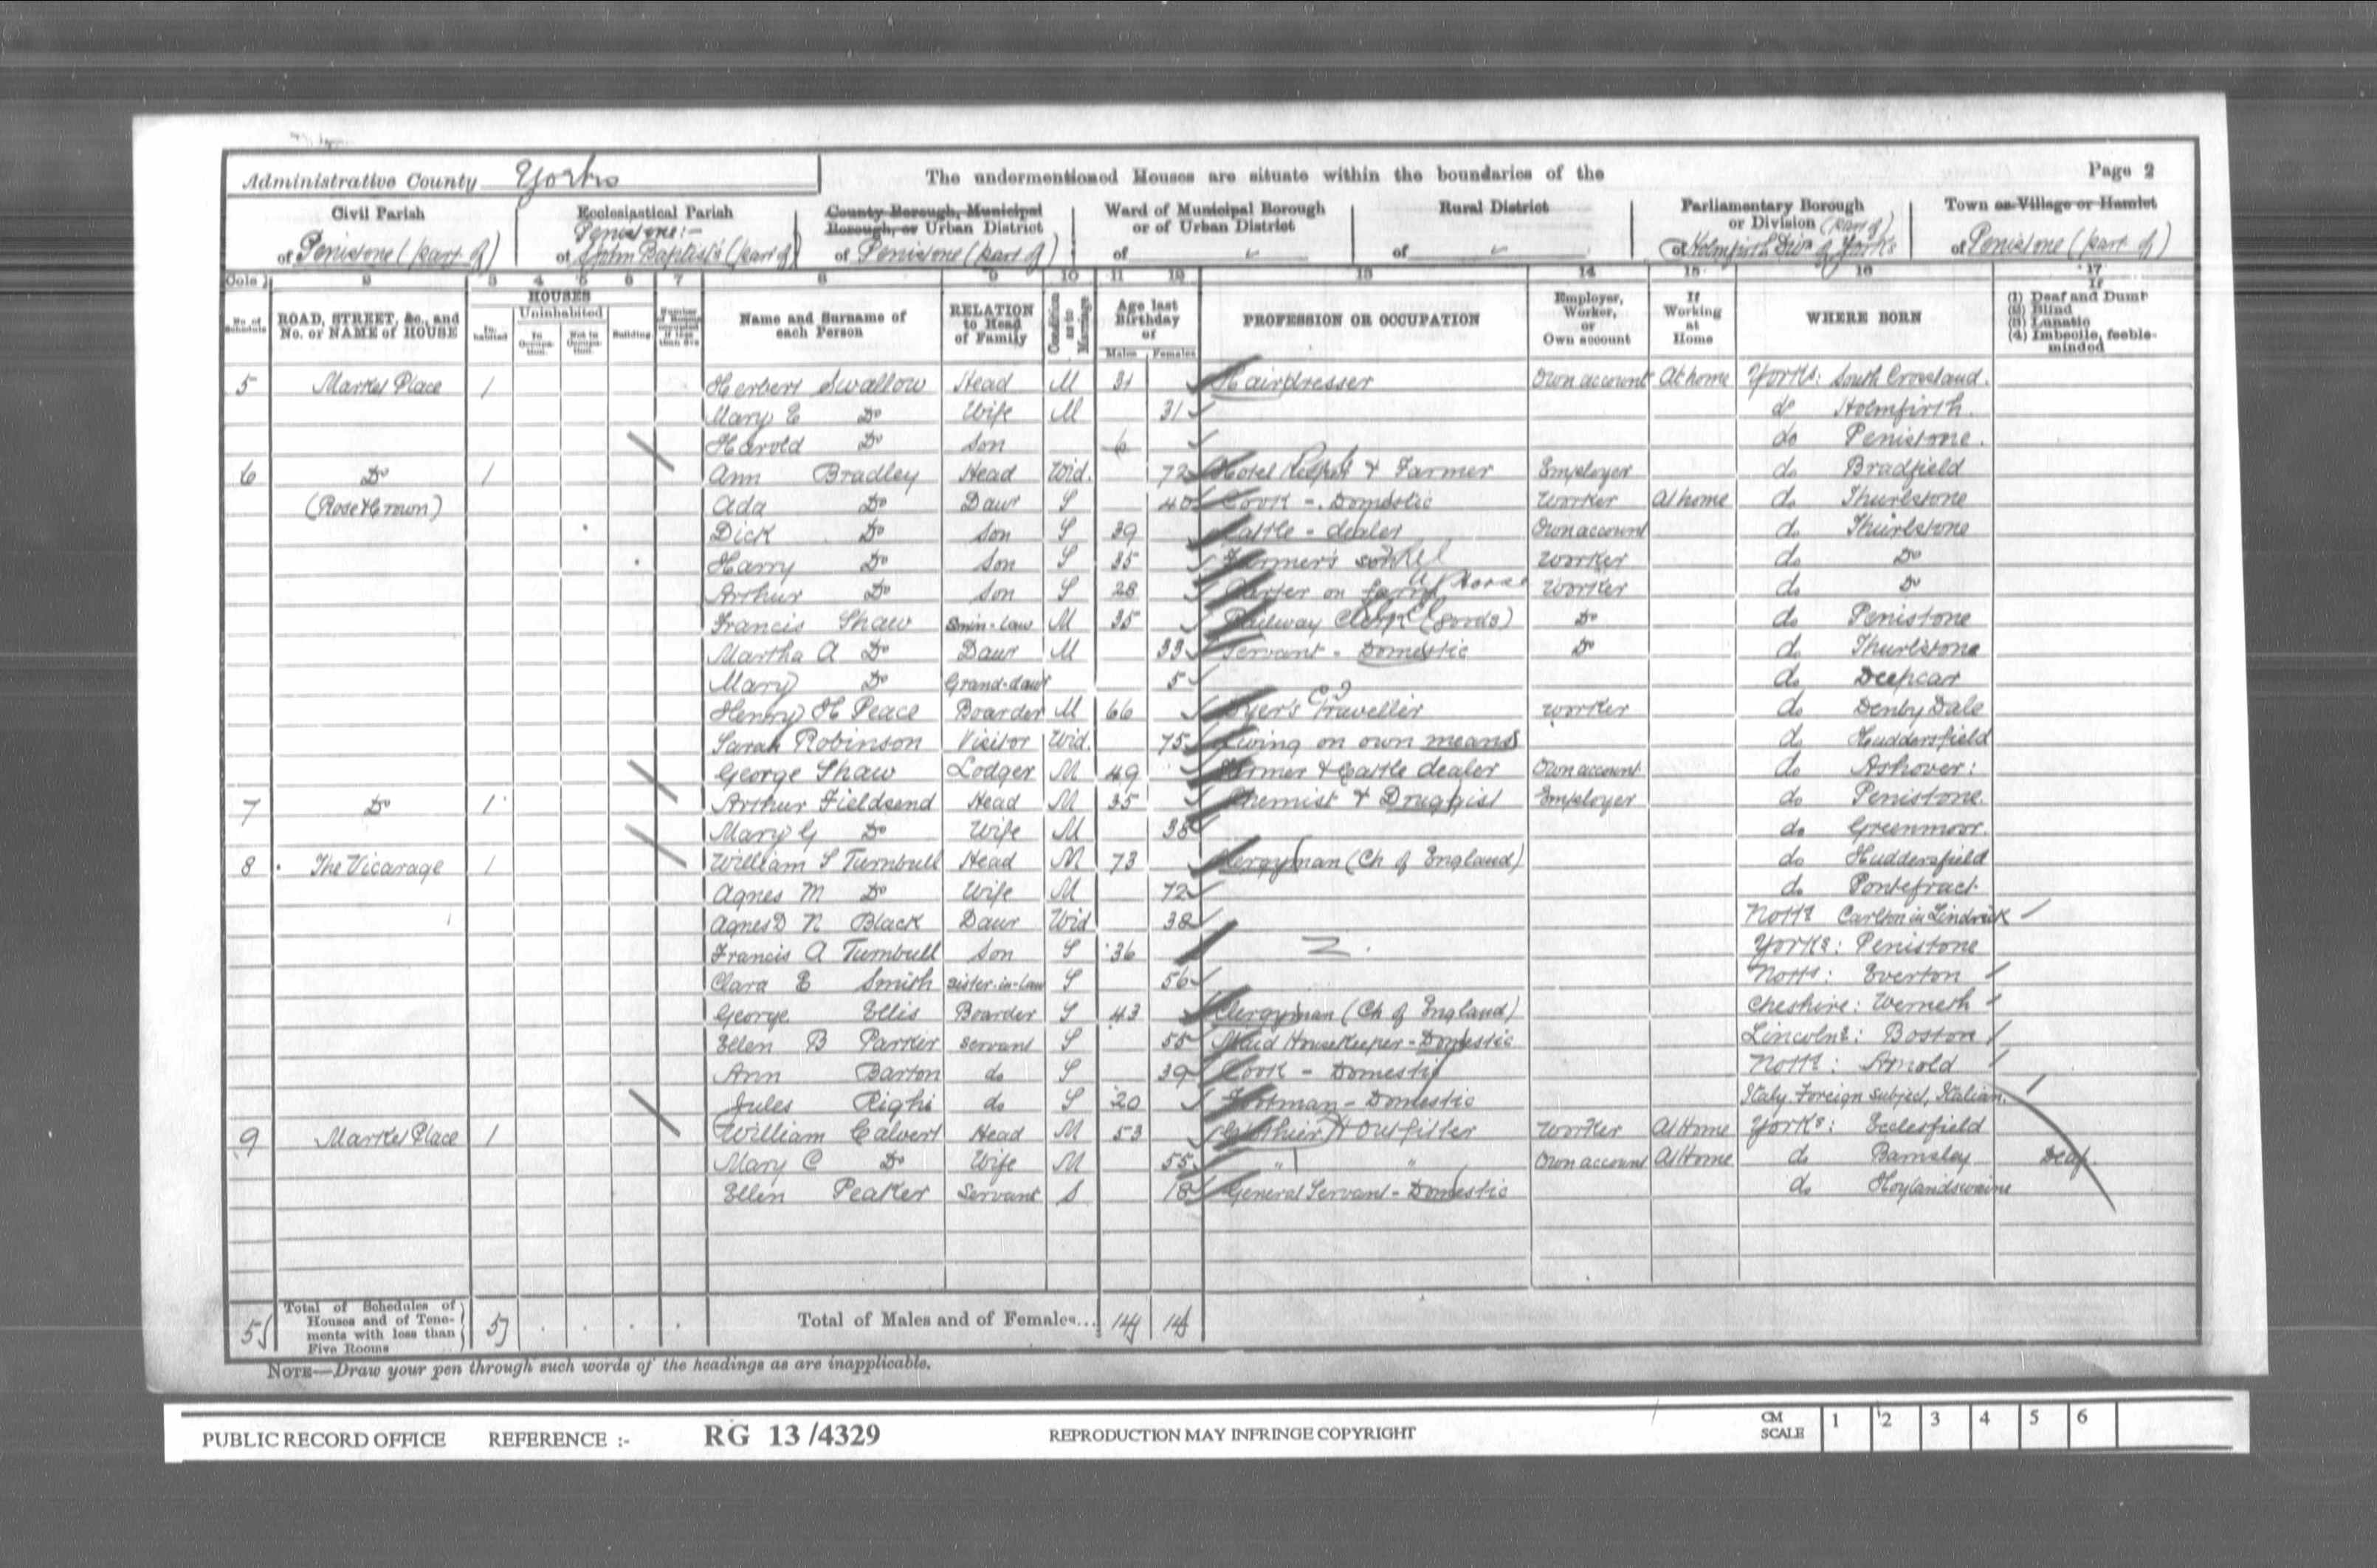 Administrative County Yorks
The undermentioned Houses are situate within the boundaries of the
Page 2
Civil Parish
of Penistone (part of)
Ecclesiastical Parish
Penistone:-
of St John Baptist's (part of)
County Borough, Municipal
Borough, or Urban District
of Penistone (part of)
Ward of Municipal Borough
or of Urban District
of
Rural District
of
Parliamentary Borough
or Division (part of)
of Holmfirth Divn of Yorks
Town or Village or Hamlet
of Penistone (part of)
Cols. 1 2 3 4 5 6 7 8 9 10 11 12 13 14 15 16 17
No. of Schedule
ROAD, STREET, &c., and
No. or NAME of HOUSE
HOUSES
In-habited
Uninhabited
In Occupa-tion.
Not in Occupa-tion.
Building
Name and Surname of
each Person
RELATION
to Head
of Family
Condition as to Marriage
Age last
Birthday
of
Males Females
PROFESSION OR OCCUPATION
Employer,
Worker,
or
Own account
If
Working
at
Home
WHERE BORN
If
(1) Deaf and Dumb
(2) Blind
(3) Lunatic
(4) Imbecile, feeble-
minded
5 Market Place 1 Herbert Swallow Head M 31 Hairdresser Own account At home Yorks: South Crosland.
Mary E Do Wife M 31 do Holmfirth.
Harold Do Son 6 do Penistone.
6 Do 1 Ann Bradley Head Wid. 72 Hotel Keeper & Farmer Employer do Bradfield
(Rose & Crown) Ada Do Daur S 40 Cook - Domestic Worker At home do Thurlstone
Dick Do Son S 39 Cattle - dealer Own account do Thurlstone
Harry Do Son S 35 Farmer's son Worker do Do
Arthur Do Son S 28 Carter on farm Horse Worker do Do
Francis Shaw Son-in-law M 35 Railway Clerk (Goods) Do do Penistone
Martha A Do Daur M 33 Servant - Domestic Do do Thurlstone
Mary Do Grand-daur 5 do Deepcar
Henry H Peace Boarder M 66 Dyer's Traveller worker do Denby Dale
Sarah Robinson Visitor Wid. 75 Living on own means do Huddersfield
George Shaw Lodger M 49 Farmer & Cattle dealer Own account do Ashover:
7 Do 1 Arthur Fieldsend Head M 35 Chemist & Druggist Employer do Penistone.
Mary G Do Wife M 38 do Greenmoor.
8 The Vicarage 1 William S Turnbull Head M 73 Clergyman (Ch of England) do Huddersfield
Agnes M Do Wife M 72 do Pontefract
Agnes D N Black Daur Wid 38 Notts Carlton in Lindrick
Francis A Turnbull Son S 36 Yorks: Penistone
Clara E Smith Sister-in-law S 56 Notts: Everton
George Ellis Boarder S 43 Clergyman (Ch of England) Cheshire: Werneth
Ellen B Parker Servant S 55 Maid Housekeeper - Domestic Lincolns: Boston
Ann Barton do S 39 Cook - Domestic Notts: Arnold
Jules Righi do S 20 Footman - Domestic Italy Foreign Subject, Italian.
9 Market Place 1 William Calvert Head M 53 Clothier & Outfitter Worker At Home Yorks: Ecclesfield
Mary C Do Wife M 55 " " Own account At Home do Barnsley Deaf
Ellen Peaker Servant S 18 General Servant - Domestic do Hoylandswaine
5 Total of Schedules of
Houses and of Tene-
ments with less than
Five Rooms
5 Total of Males and of Females... 14 14
NOTE—Draw your pen through such words of the headings as are inapplicable.
PUBLIC RECORD OFFICE REFERENCE :- RG 13/4329 REPRODUCTION MAY INFRINGE COPYRIGHT CM SCALE 1 2 3 4 5 6